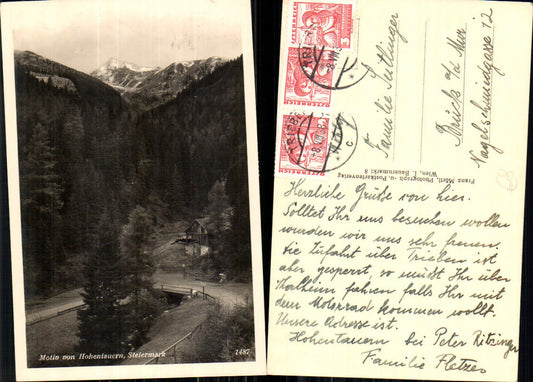 Motiv von Hohentauern, Steiermark
1487
ÖSTERREICH
TRIEBEN
Familie Seitlinger
Bruck a/d Mur
Nagelschmiedgasse 12
Franz Mörtl, Photograph- u. Postkartenverlag
Wien, I., Bauernmarkt 8
Herzliche Grüße von hier.
Solltet Ihr uns besuchen wollen
wurden wir uns sehr freuen.
die Zufahrt über Trieben ist
aber gesperrt, so müßt Ihr über
Möderbrugg fahren falls Ihr mit
dem Motorrad kommen wollt.
Unsere Adresse ist.
Hohentauern bei Peter Ritzinger
Familie Fletzer